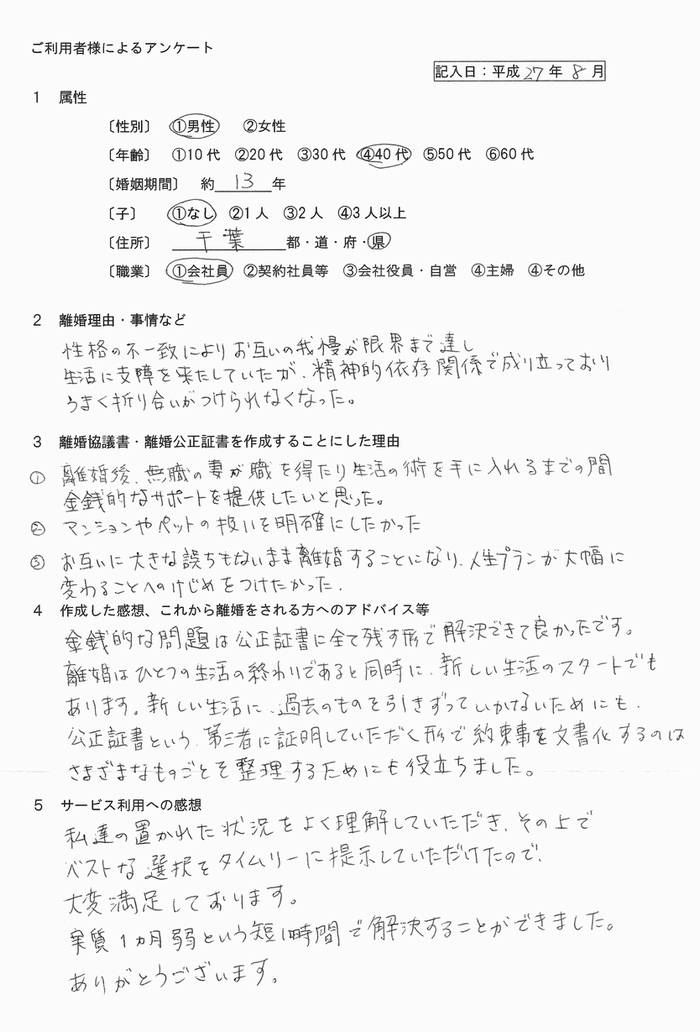 ご利用者様によるアンケート
記入日：平成 27 年 8 月
1 属性
〔性別〕 ①男性 ②女性
〔年齢〕 ①10代 ②20代 ③30代 ④40代 ⑤50代 ⑥60代
〔婚姻期間〕 約 13 年
〔子〕 ①なし ②1人 ③2人 ④3人以上
〔住所〕 千葉 都・道・府・県
〔職業〕 ①会社員 ②契約社員等 ③会社役員・自営 ④主婦 ④その他
2 離婚理由・事情など
性格の不一致によりお互いの我慢が限界まで達し
生活に支障を来たしていたが、精神的依存関係で成り立っており
うまく折り合いがつけられなくなった。
3 離婚協議書・離婚公正証書を作成することにした理由
① 離婚後、無職の妻が職を得たり生活の術を手に入れるまでの間
金銭的なサポートを提供したいと思った。
② マンションやペットの扱いを明確にしたかった
③ お互いに大きな誤ちもないまま離婚することになり、人生プランが大幅に
変わることへのけじめをつけたかった.
4 作成した感想、これから離婚をされる方へのアドバイス等
金銭的な問題は公正証書に全て残す形で解決できて良かったです。
離婚はひとつの生活の終わりであると同時に、新しい生活のスタートでも
あります。新しい生活に、過去のものを引きずっていかないためにも、
公正証書という、第三者に証明していただく形で約束事を文書化するのは
さまざまなものごとを整理するためにも役立ちました。
5 サービス利用への感想
私達の置かれた状況をよく理解していただき、その上で
ベストな選択をタイムリーに提示していただけたので、
大変満足しております。
実質1カ月弱という短い時間で解決することができました。
ありがとうございます。